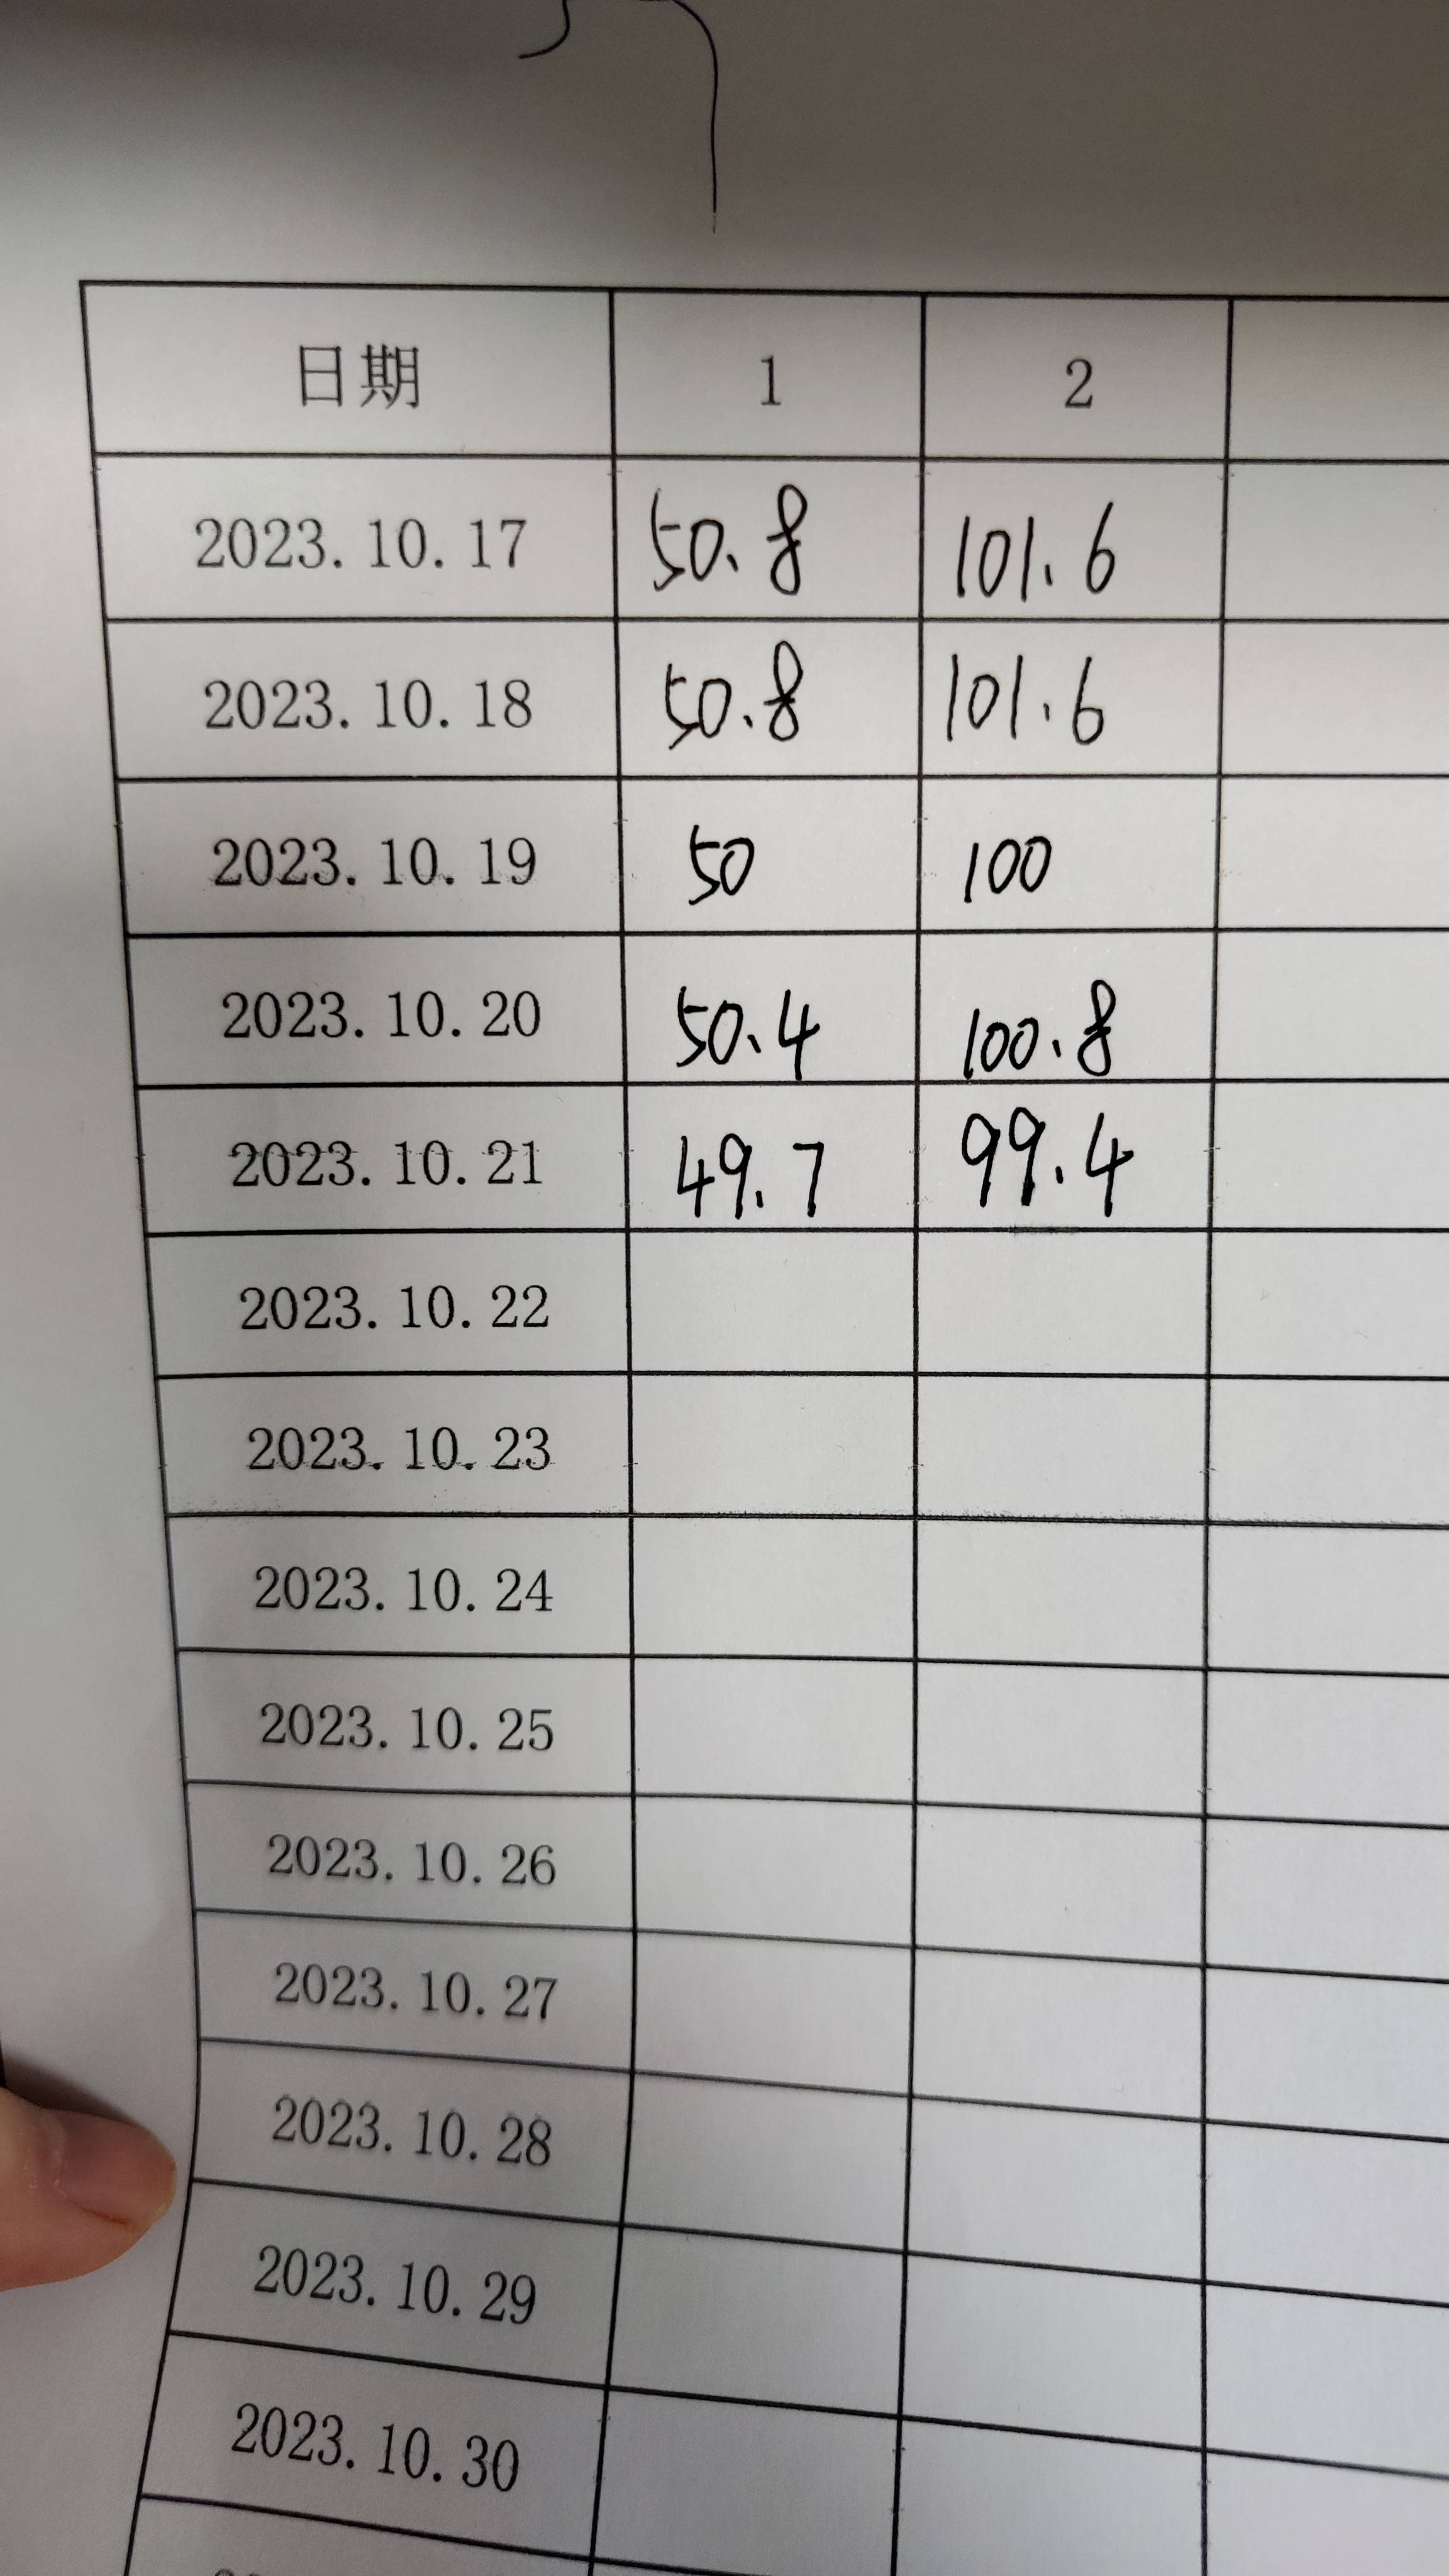 日期 1 2
2023.10.17 50.8 101.6
2023.10.18 50.8 101.6
2023.10.19 50 100
2023.10.20 50.4 100.8
2023.10.21 49.7 99.4
2023.10.22
2023.10.23
2023.10.24
2023.10.25
2023.10.26
2023.10.27
2023.10.28
2023.10.29
2023.10.30